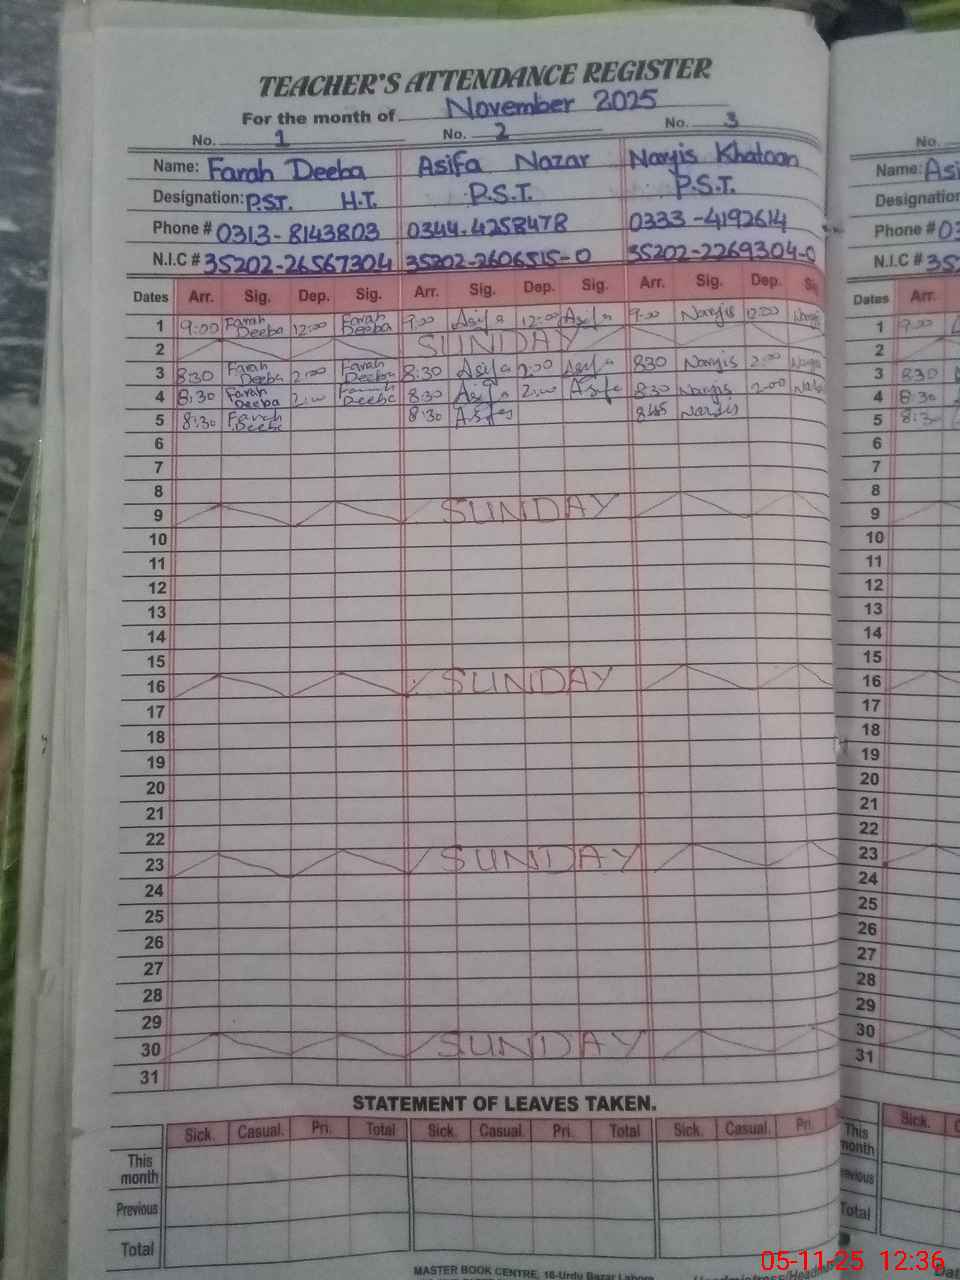 TEACHER'S ATTENDANCE REGISTER
For the month of November 2025
No. 1 No. 2 No. 3 No.
Name: Farah Deeba Asifa Nazar Narjis Khatoon Name: Asi
Designation: P.ST. H.T. P.S.T. P.S.T. Designation
Phone # 0313-8143803 0344.4258478 0333-4192614 Phone # 03
N.I.C # 35202-26567304 35202-2606515-0 35202-2269304-0 N.I.C # 352
Dates Arr. Sig. Dep. Sig. Arr. Sig. Dep. Sig. Arr. Sig. Dep. Sig Dates Arr.
1 9:00 Farah Deeba 12:00 Farah Deeba 9:00 Asifa 12:00 Asifa 9:00 Narjis 12:00 Narjis 1 9:00
2 SUNDAY 2
3 8:30 Farah Deeba 2:00 Farah Deeba 8:30 Asifa 2:00 Asifa 830 Narjis 2:00 3 830
4 8:30 Farah Deeba 2:00 Farah Deeba 8:30 Asifa 2:00 Asifa 8:30 Narjis 2:00 4 8:30
5 8:30 Farah Deeba 8:30 Asifa 8:45 Narjis 5 8:30
6 6
7 7
8 8
9 SUNDAY 9
10 10
11 11
12 12
13 13
14 14
15 15
16 SUNDAY 16
17 17
18 18
19 19
20 20
21 21
22 22
23 SUNDAY 23
24 24
25 25
26 26
27 27
28 28
29 29
30 SUNDAY 30
31 31
STATEMENT OF LEAVES TAKEN.
Sick. Casual. Pri. Total Sick. Casual. Pri. Total Sick. Casual. Pri. Sick.
This month This month
Previous
Total Total
MASTER BOOK CENTRE, 16-Urdu Bazar Lahore
05-11-25 12:36